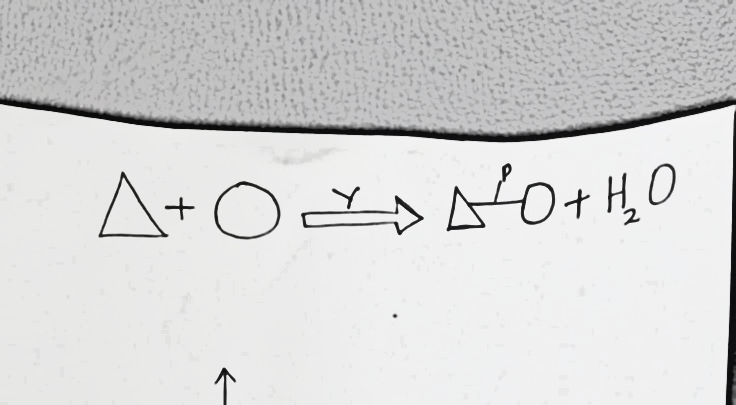 △ + ○ Y ⇒ △ P ○ + H₂O